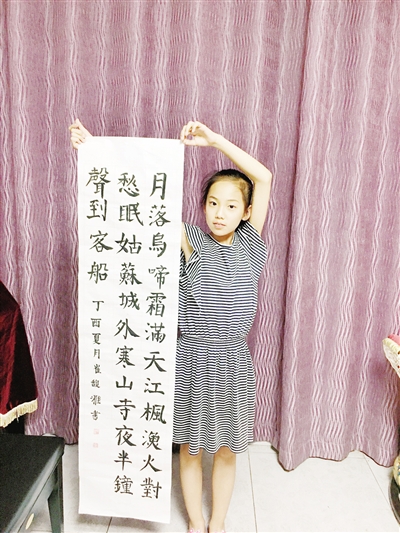 月落烏啼霜滿天江楓漁火對
愁眠姑蘇城外寒山寺夜半鐘
聲到客船 丁酉夏月崔馥書